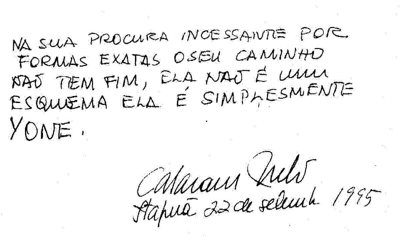 NA SUA PROCURA INCESSANTE POR
FORMAS EXATAS O SEU CAMINHO
NAÕ TEM FIM, ELA NAÕ É UM
ESQUEMA ELA É SIMPLESMENTE
YONE.
Calasans Neto
Itapuã 22 de setemb 1995